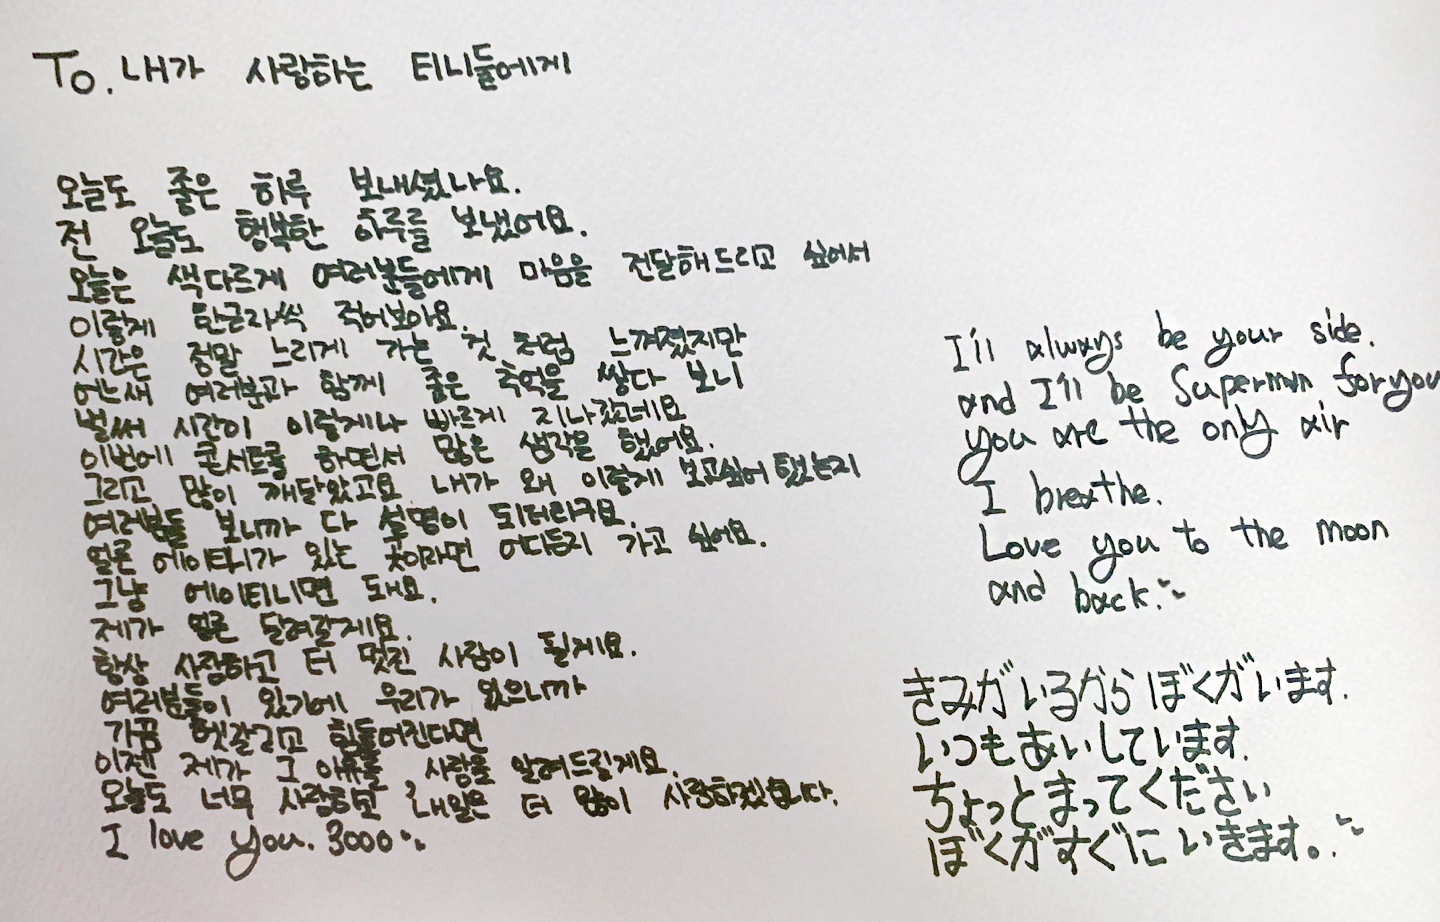 To. 내가 사랑하는 티니들에게
오늘도 좋은 하루 보내셨나요.
전 오늘도 행복한 하루를 보냈어요.
오늘은 색다르게 여러분들에게 마음을 전달해드리고 싶어서
이렇게 한글자씩 적어보아요.
시간은 정말 느리게 가는 것 처럼 느껴졌지만
어느새 여러분과 함께 좋은 추억을 쌓다 보니
벌써 시간이 이렇게나 빠르게 지나갔네요
이번에 콘서트를 하면서 많은 생각을 했어요.
그리고 많이 깨달았고요 내가 왜 이렇게 보고싶어 했는지
여러분들 보니까 다 설명이 되더라구요.
얼른 에이티니가 있는 곳이라면 어디든지 가고 싶어요.
그냥 에이티니면 돼요.
제가 얼른 달려갈게요.
항상 사랑하고 더 멋진 사람이 될게요.
여러분들이 있기에 우리가 있으니까
가끔 헷갈리고 힘들어진다면
이젠 제가 그 이유를 사랑을 알려드릴게요.
오늘도 너무 사랑하고 내일은 더 많이 사랑하겠습니다.
I love you. 3000
I'll always be your side.
and I'll be Superman for you
you are the only air
I breathe.
Love you to the moon
and back.
きみがいるから ぼくがいます.
いつもあいしています.
ちょっとまってください
ぼくがすぐに いきます。.